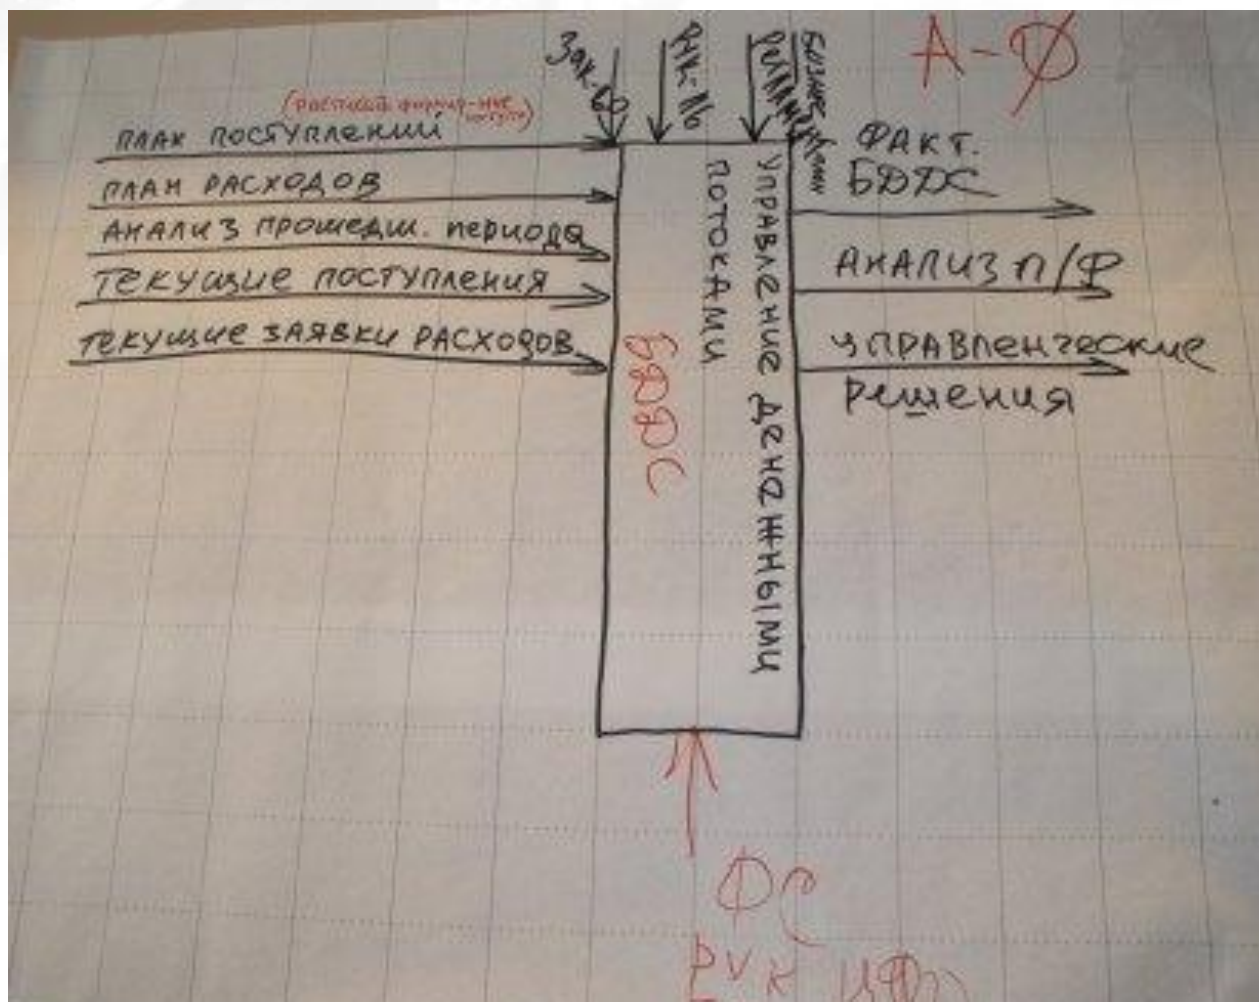 А-Ф
Зак-во
РНК-116
Регламенты
план поступлений
план расходов
Анализ прошедш. периода
Текущие поступления
Текущие заявки расходов
Управление денежными
потоками
БДДС
Факт.
БДДС
Анализ П/Ф
Управленческие
решения
ФС
Рук ЦФО